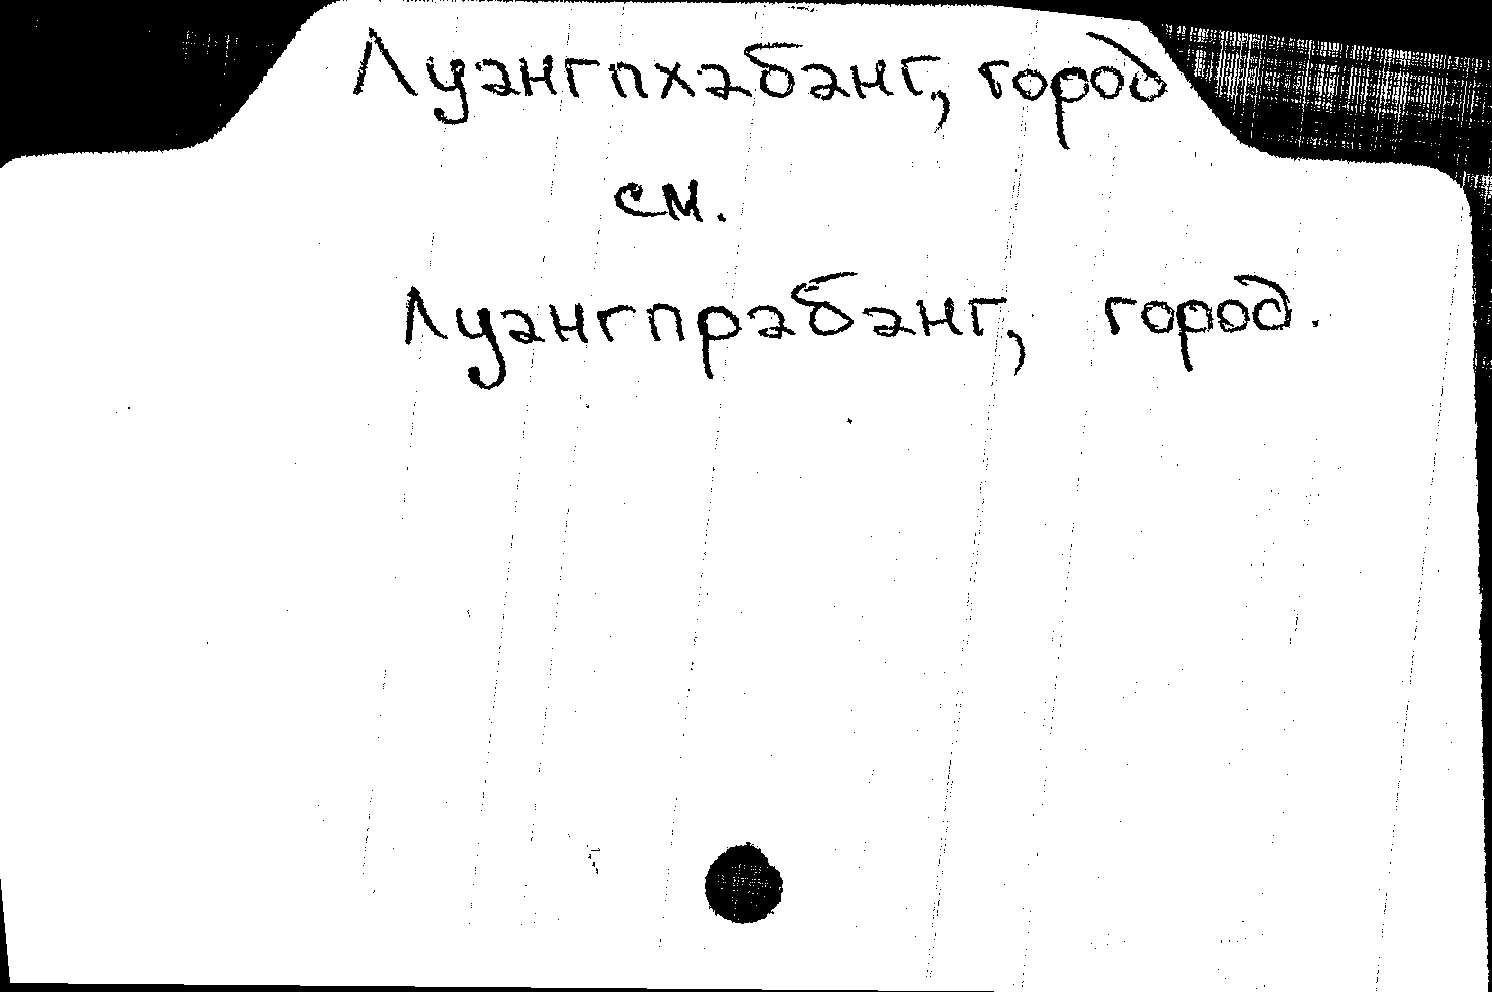 Луангпхабанг, город
см.
Луангпрабанг, город.